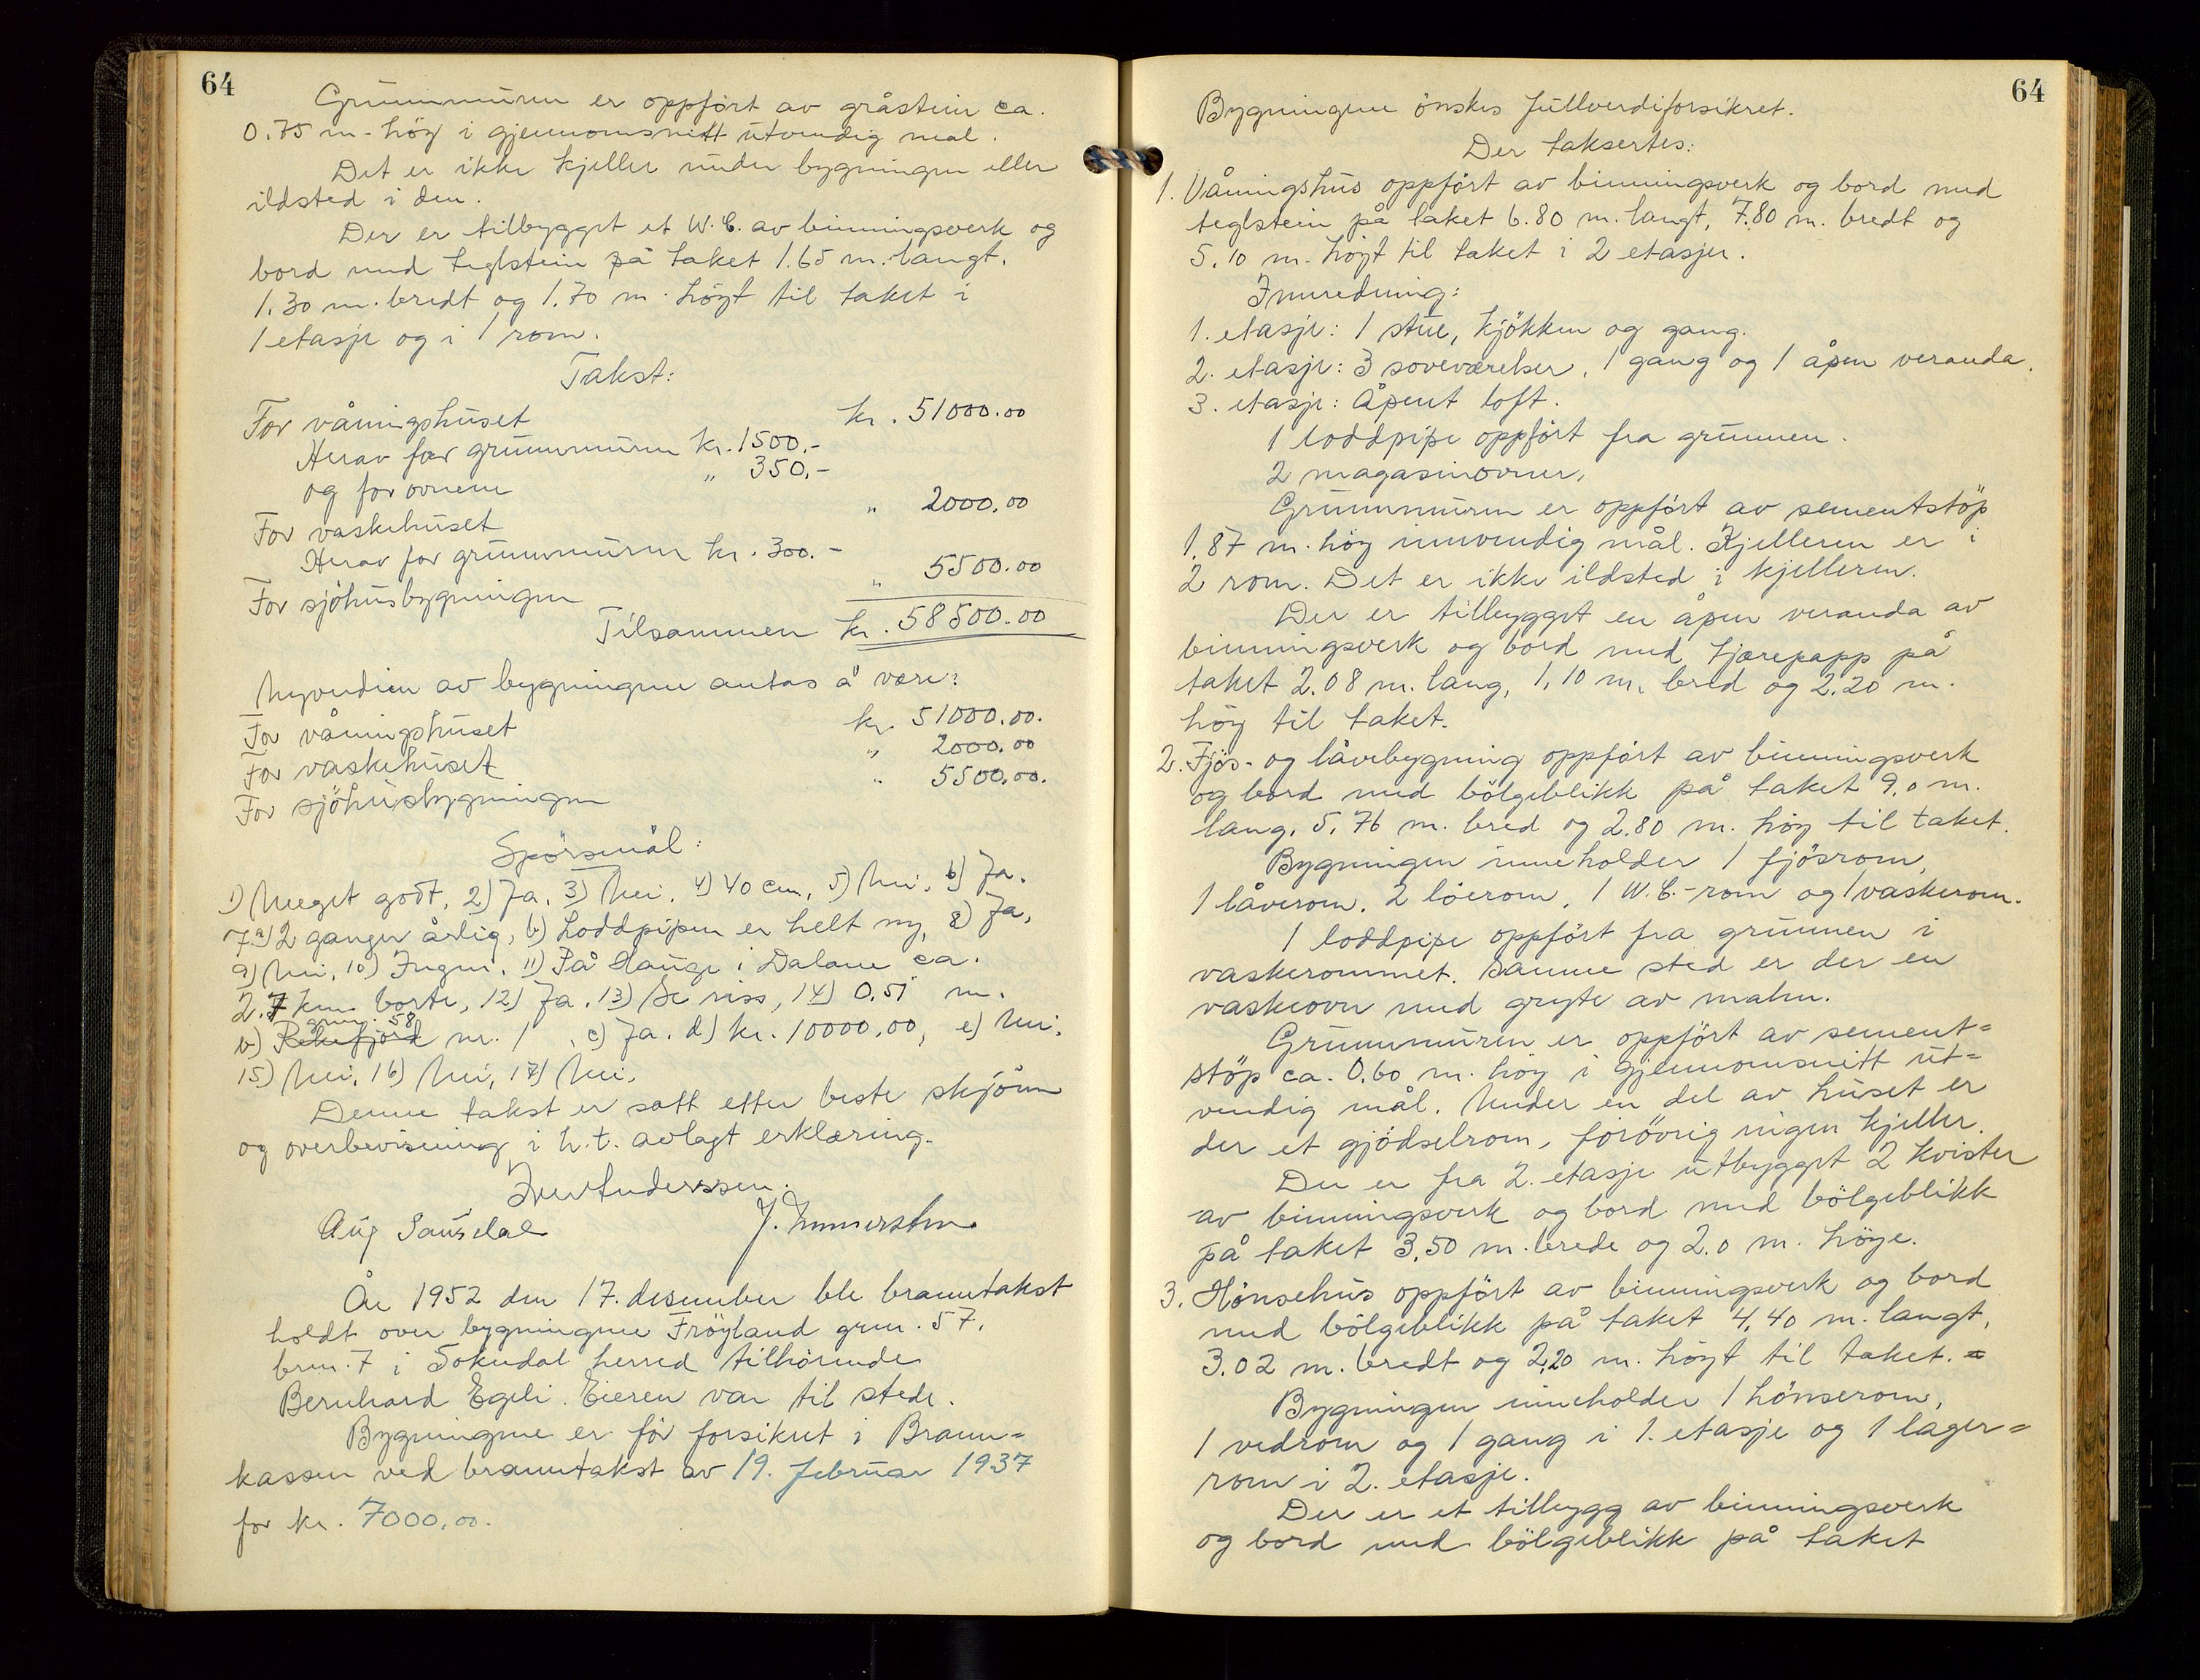 64
Grunnmuren er oppført av gråstein ca.
0.75 m. høg i gjennomsnitt utvendig mål.
Det er ikke kjeller under bygningen eller
ildsted i den.
Der er tilbygget et W.C. av binningsverk og
bord med teglstein på taket 1.65 m. langt,
1.30 m. bredt og 1.70 m. høgt til taket i
1 etasje og i 1 rom.
Takst:
For våningshuset kr. 51000.00
Herav for grunnmuren kr. 1500.-
og for ovnene " 350.-
For vaskehuset " 2000.00
Herav for grunnmuren kr. 300.-
For sjøhusbygningen " 5500.00
Tilsammen kr. 58500.00
Nyverdien av bygningene antas å være:
For våningshuset kr. 51000.00.
For vaskehuset " 2000.00
For sjøhusbygningen " 5500.00.
Spørsmål:
1) Meget godt, 2) Ja, 3) Nei, 4) 40 cm, 5) Nei, 6) Ja.
7.a) 2 ganger årlig, b) Loddpipen er helt ny, 8) Ja,
9) Nei, 10) Ingen, 11) På Hauge i Dalane ca.
2.7 km borte, 12) Ja, 13) Se riss, 14) 0.51 m.
gnr. 58
b) Rekefjord nr. 1, c) Ja. d) kr. 10000.00, e) Nei.
15) Nei, 16) Nei, 17) Nei.
Denne takst er satt etter beste skjønn
og overbevisning i h.t. avlagt erklæring.
Iver Anderssen.
Aug Saurdal
År 1952 den 17. desember ble branntakst
holdt over bygningene Frøyland grn. 57,
brn. 7 i Sokndal herred tilhørende
Bernhard Egeli. Eieren var til stede.
Bygningene er før forsikret i Brann=
kassen ved branntakst av 19. februar 1937
for kr. 7000,00.
64
Bygningene ønskes fullverdiforsikret.
Der taksertes:
1. Våningshus oppført av binningsverk og bord med
teglstein på taket 6.80 m. langt, 7.80 m. bredt og
5.10 m. høgt til taket i 2 etasjer.
Innredning:
1. etasje: 1 stue, kjøkken og gang.
2. etasje: 3 soveværelser, 1 gang og 1 åpen veranda.
3. etasje: Åpent loft.
1 loddpipe oppført fra grunnen.
2 magasinovner.
Grunnmuren er oppført av sementstøp
1.87 m. høg innvendig mål. Kjelleren er i
2 rom. Det er ikke ildsted i kjelleren.
Der er tilbygget en åpen veranda av
binningsverk og bord med tjærepapp på
taket 2.08 m. lang, 1.10 m. bred og 2.20 m.
høg til taket.
2. Fjøs- og låvebygning oppført av binningsverk
og bord med bølgeblikk på taket 9.0 m.
lang, 5.76 m. bred og 2.80 m. høg til taket.
Bygningen inneholder 1 fjøsrom,
1 låverom, 2 løerom, 1 W.C.-rom og 1 vaskerom.
1 loddpipe oppført fra grunnen i
vaskerommet. Samme sted er der en
vaskeovn med gryte av malm.
Grunnmuren er oppført av sement=
støp ca. 0.60 m. høg i gjennomsnitt ut=
vendig mål. Under en del av huset er
der et gjødselrom, forøvrig ingen kjeller.
Der er fra 2. etasje utbygget 2 kvister
av binningsverk og bord med bølgeblikk
på taket 3,50 m. brede og 2.0 m. høge.
3. Hønsehus oppført av binningsverk og bord
med bølgeblikk på taket 4,40 m. langt,
3.02 m. bredt og 2,20 m. høgt til taket.
Bygningen inneholder 1 hønserom,
1 vedrom og 1 gang i 1. etasje og 1 lager=
rom i 2. etasje.
Der er et tilbygg av binningsverk
og bord med bølgeblikk på taket